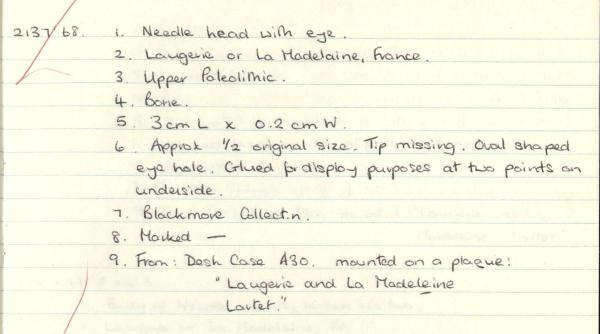 2137/68. 1. Needle head with eye.
2. Laugerie or La Madelaine, France.
3. Upper Paleolithic.
4. Bone.
5. 3cm L x 0.2 cm W.
6. Approx 1/2 original size. Tip missing. Oval shaped
eye hole. Glued for display purposes at two points on
underside.
7. Blackmore Collectn.
8. Marked —
9. From: Desk Case A30. mounted on a plaque:
"Laugerie and La Madeleine
Lartet."